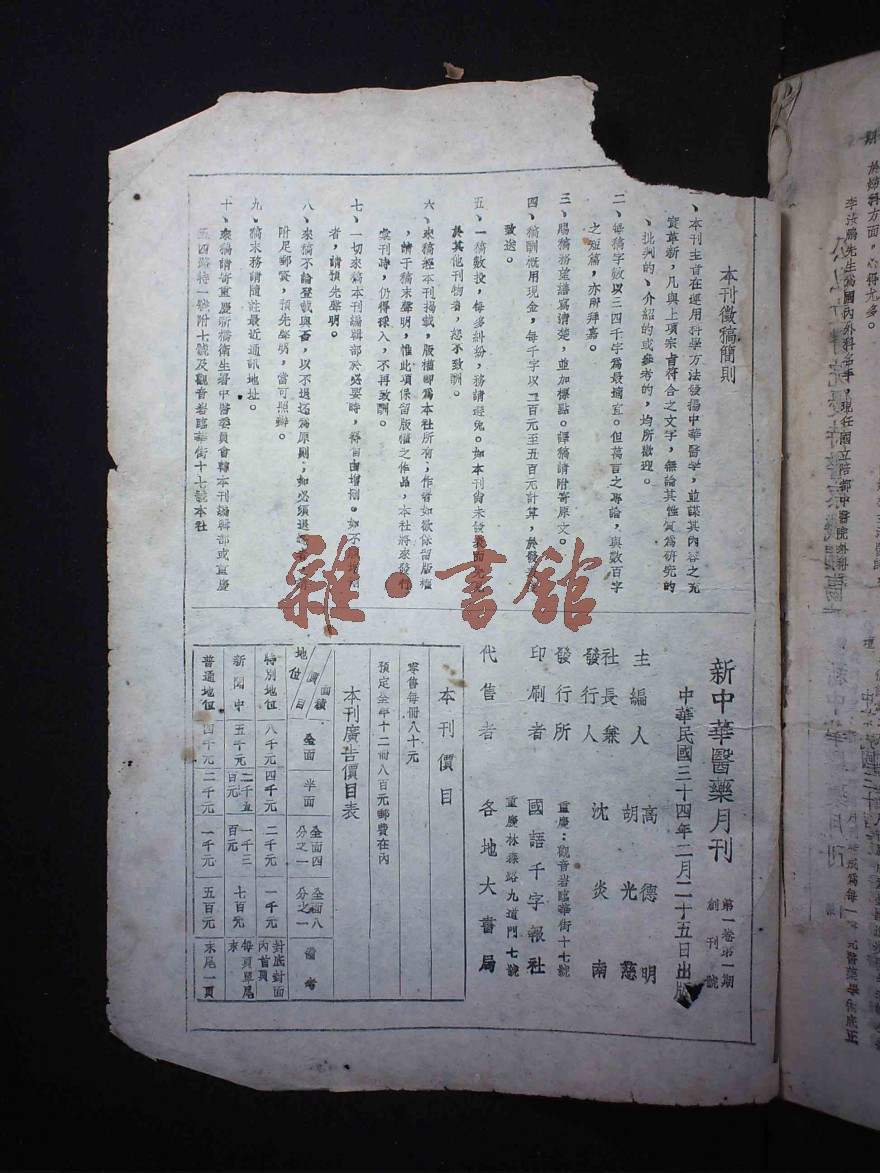 本刊徵稿簡則
一、本刊主旨在運用科學方法發揚中華醫學，並謀其內容之充
實革新，凡與上項宗旨符合之文字，無論其性質爲研究的
、批判的、介紹的或參考的，均所歡迎。
二、每稿字數以三四千字爲最適宜。但萬言之專論，與數百字
之短篇，亦所拜嘉。
三、賜稿務望謄寫清楚，並加標點。譯稿請附寄原文。
四、稿酬概用現金，每千字以二百元至五百元計算，於發
致送。
五、一稿數投，每多糾紛，務請避免。如本刊尚未發表而先見
於其他刊物者，恕不致酬。
六、來稿經本刊揭載，版權即爲本社所有；作者如欲保留版權
，請于稿末聲明，惟此項保留版權之作品，本社將來發行
彙刊時，仍得採入，不再致酬。
七、一切來稿本刊編輯部於必要時，得自由增刪。如不願增刪
者，請預先聲明。
八、來稿不論登載與否，以不退還爲原則；如必須退還者，
附足郵票，預先聲明，當可照辦。
九、稿末務請隨註最近通訊地址。
十、來稿請寄重慶新橋衛生署中醫委員會轉本刊編輯部或重慶
五四路特一號附七號及觀音岩臨華街十七號本社
新中華醫藥月刊
第一卷第一期
創刊號
中華民國三十四年二月二十五日出版
主編人 高德明
胡光慈
社長兼
發行人 沈炎南
發行所 重慶：觀音岩臨華街十七號
印刷者 國語千字報社
重慶林森路九道門七號
代售者 各地大書局
本刊價目
零售每冊八十元
預定全年十二冊八百元郵費在內
本刊廣告價目表
面積 價目 地位 全面 半面 全面四分之一 全面八分之一 備考
特別地位 八千元 四千元 二千元 一千元 封底封面內首頁
新聞中 五千元 二千五百元 一千三百元 七百元 每頁單尾末
普通地位 四千元 二千元 一千元 五百元 末尾一頁
雜·書館
期
於婦科方面，心得尤多。
李汝鵬先生爲國內外科名手，現任國立陪都中醫院外科